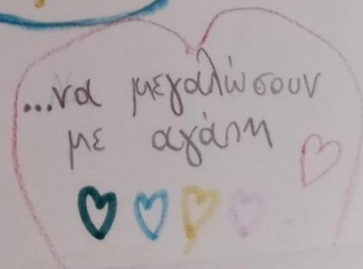 ...να μεγαλώσουν
με αγάπη